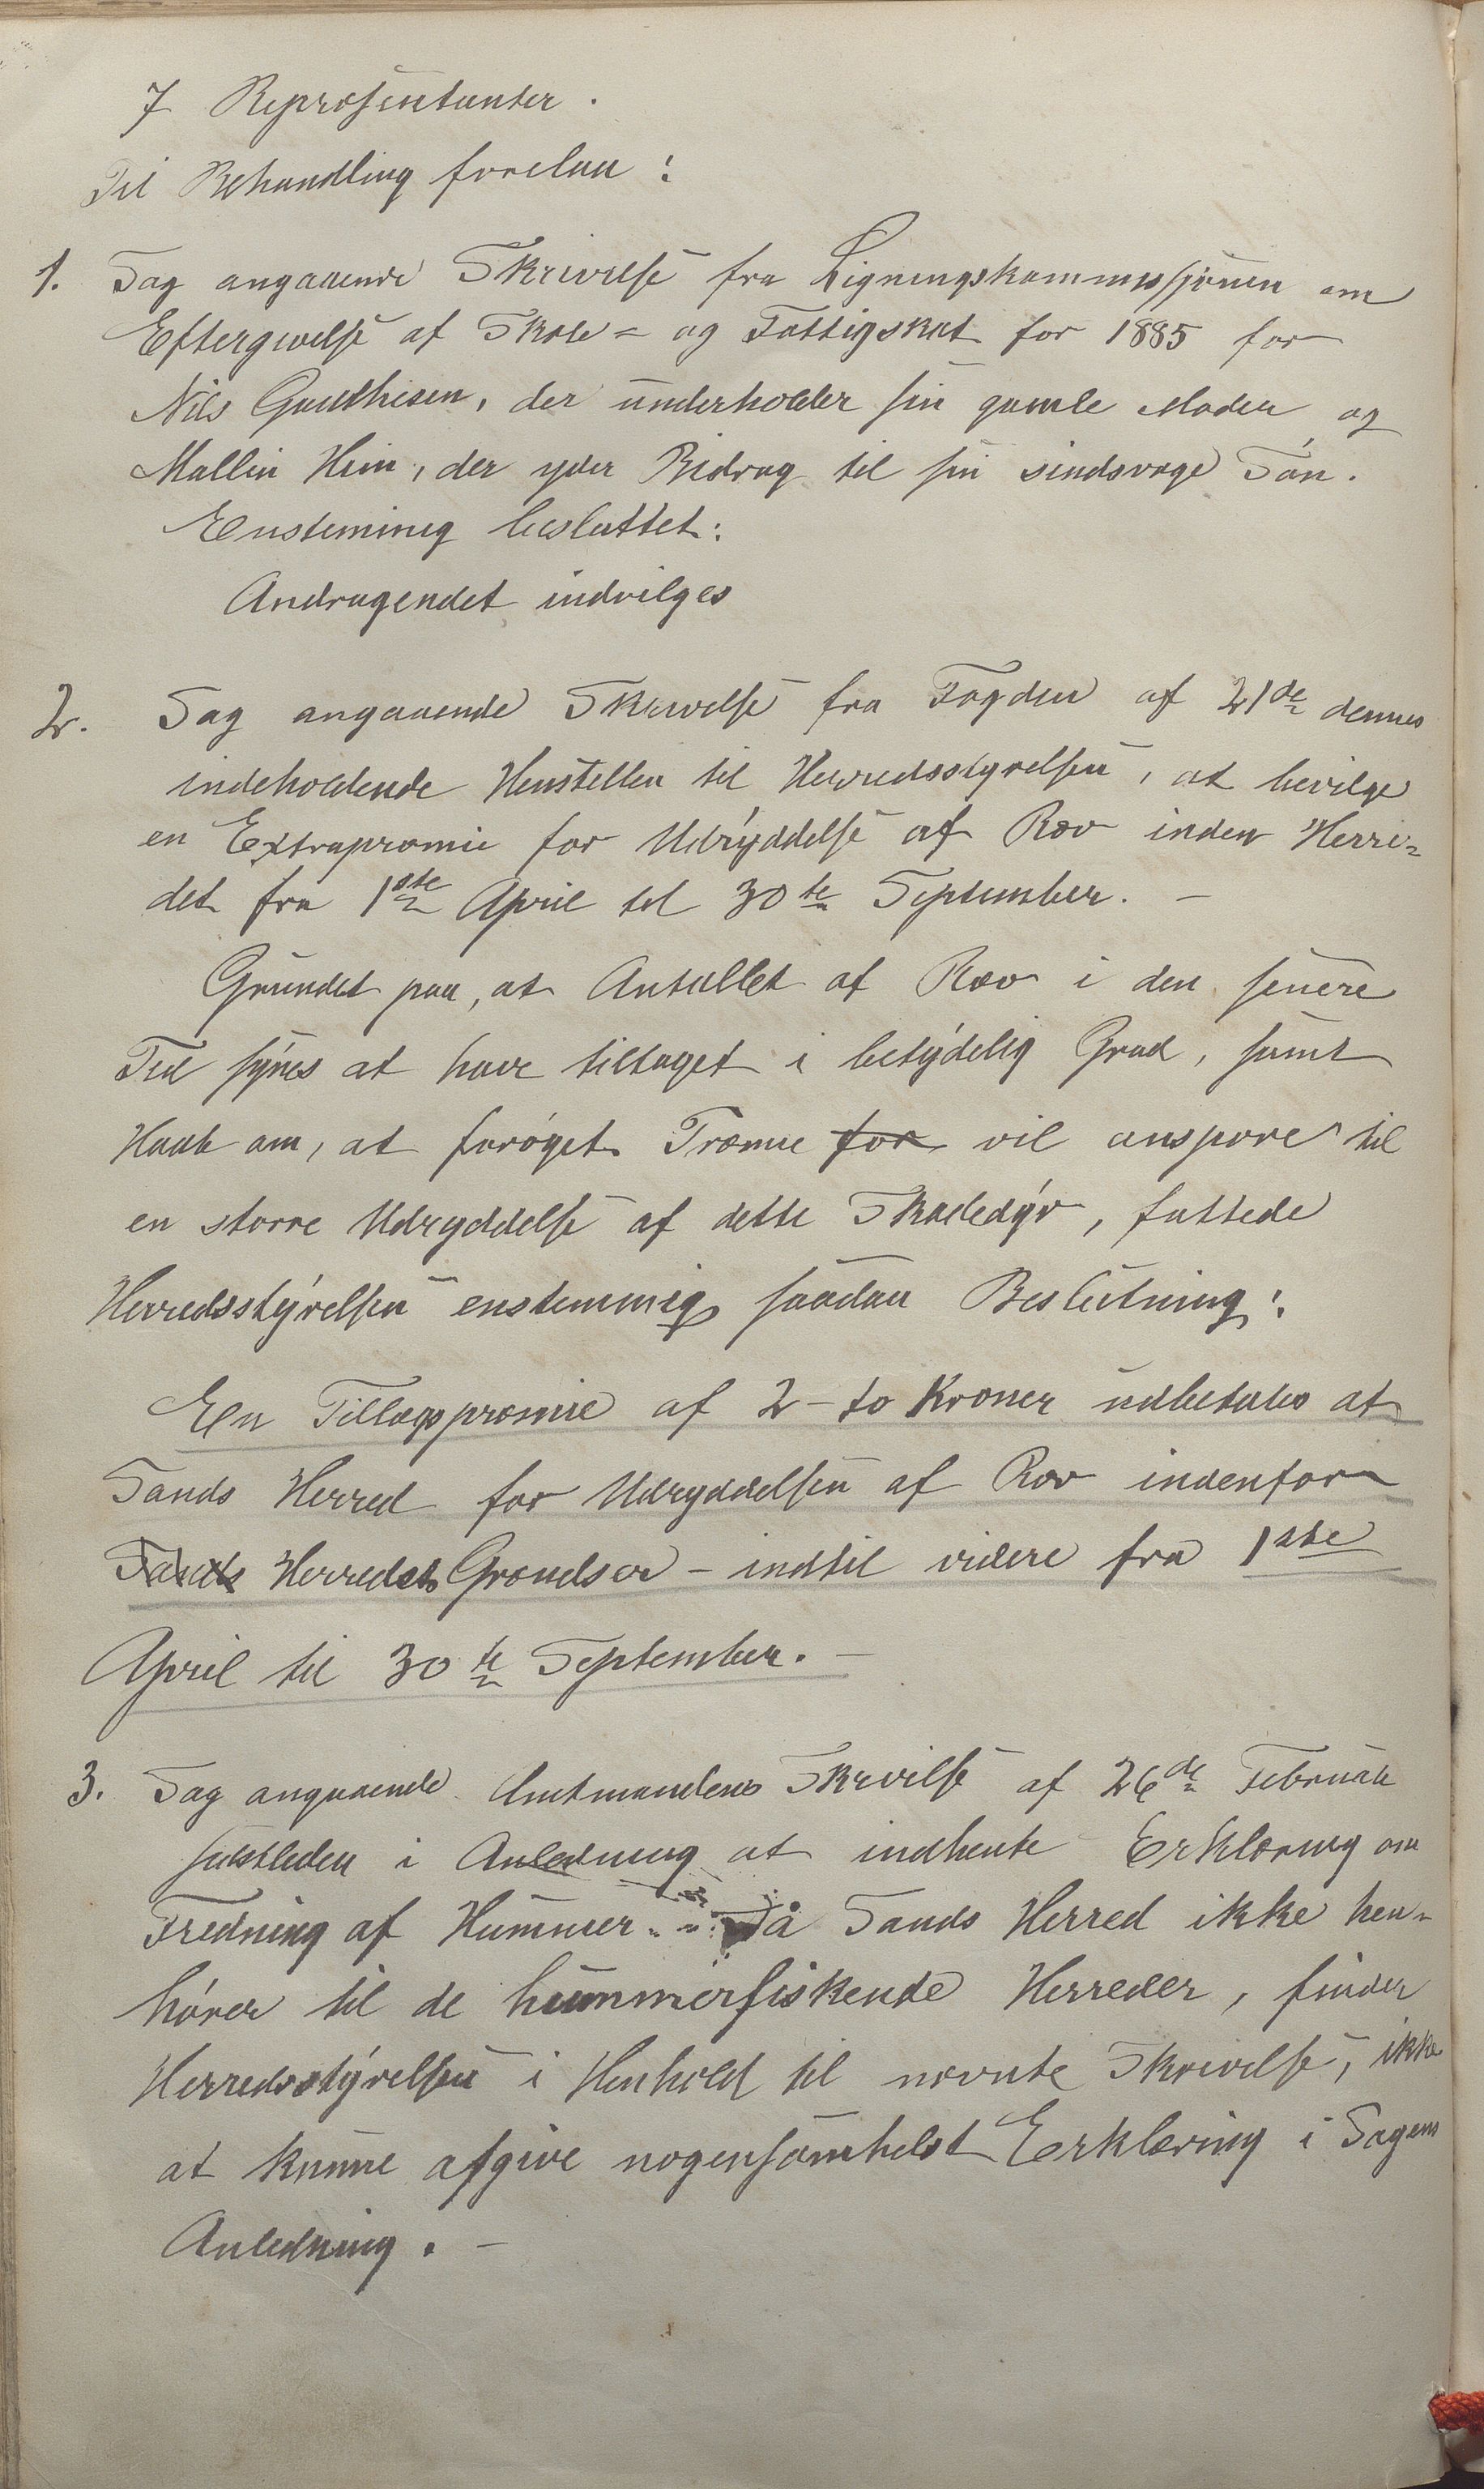 7 Repræsentanter.
Til Behandling forelaa:
1. Sag angaaende Skrivelse fra Ligningskommissjonen om
Eftergivelse af Skole- og Fattigskat for 1885 for
Nils Gauthisen, der underholder sin gamle Moder og
Mallin Hein, der yder Bidrag til sin sindsvage Søn.
Enstemmig besluttet:
Andragendet indvilges
2. Sag angaaende Skrivelse fra Fogden af 21de dennes
indeholdende Henstillen til Herredsstyrelsen, at bevilge
en Extrapræmie for Udryddelse af Ræv inden Herre-
det fra 1ste April til 30te September. -
Grundet paa, at Antallet af Ræv i den senere
Tid synes at have tiltaget i betydelig Grad, samt
Haab om, at forøget Præmie for vil anspore til
en større Udryddelse af dette Skadedyr, fattede
Herredsstyrelsen enstemmig saadan Beslutning:
En Tillægspræmie af 2 - to Kroner udbetales at
Sands Herred for Udryddelsen af Ræv indenfor
Sands Herredets Grændser - indtil videre fra 1ste
April til 30te September. -
3. Sag angaaende Amtmandens Skrivelse af 26de Februar
sidstleden i Anledning at indhente Erklæring om
Fredning af Hummer. - Då Sands Herred ikke hen-
hører til de hummerfiskende Herreder, finder
Herredsstyrelsen i Henhold til nævnte Skrivelse, ikke
at kunne afgive nogensomhelst Erklæring i Sagens
Anledning. -